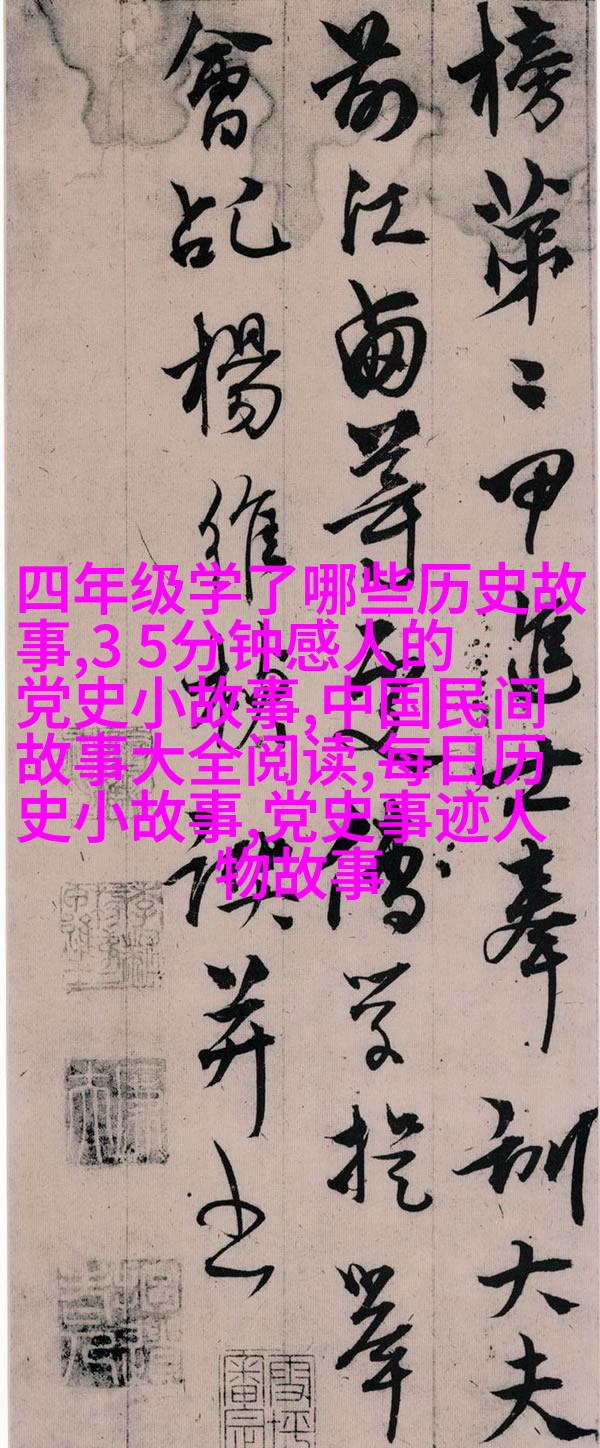 榜第二甲進士奉訓大夫
前江西等處儒學提舉
會稽楊維楨譔并書
四年级学了哪些历史故
事,3 5分钟感人的
党史小故事,中国民间
故事大全阅读,每日历
史小故事,党史事迹人
物故事